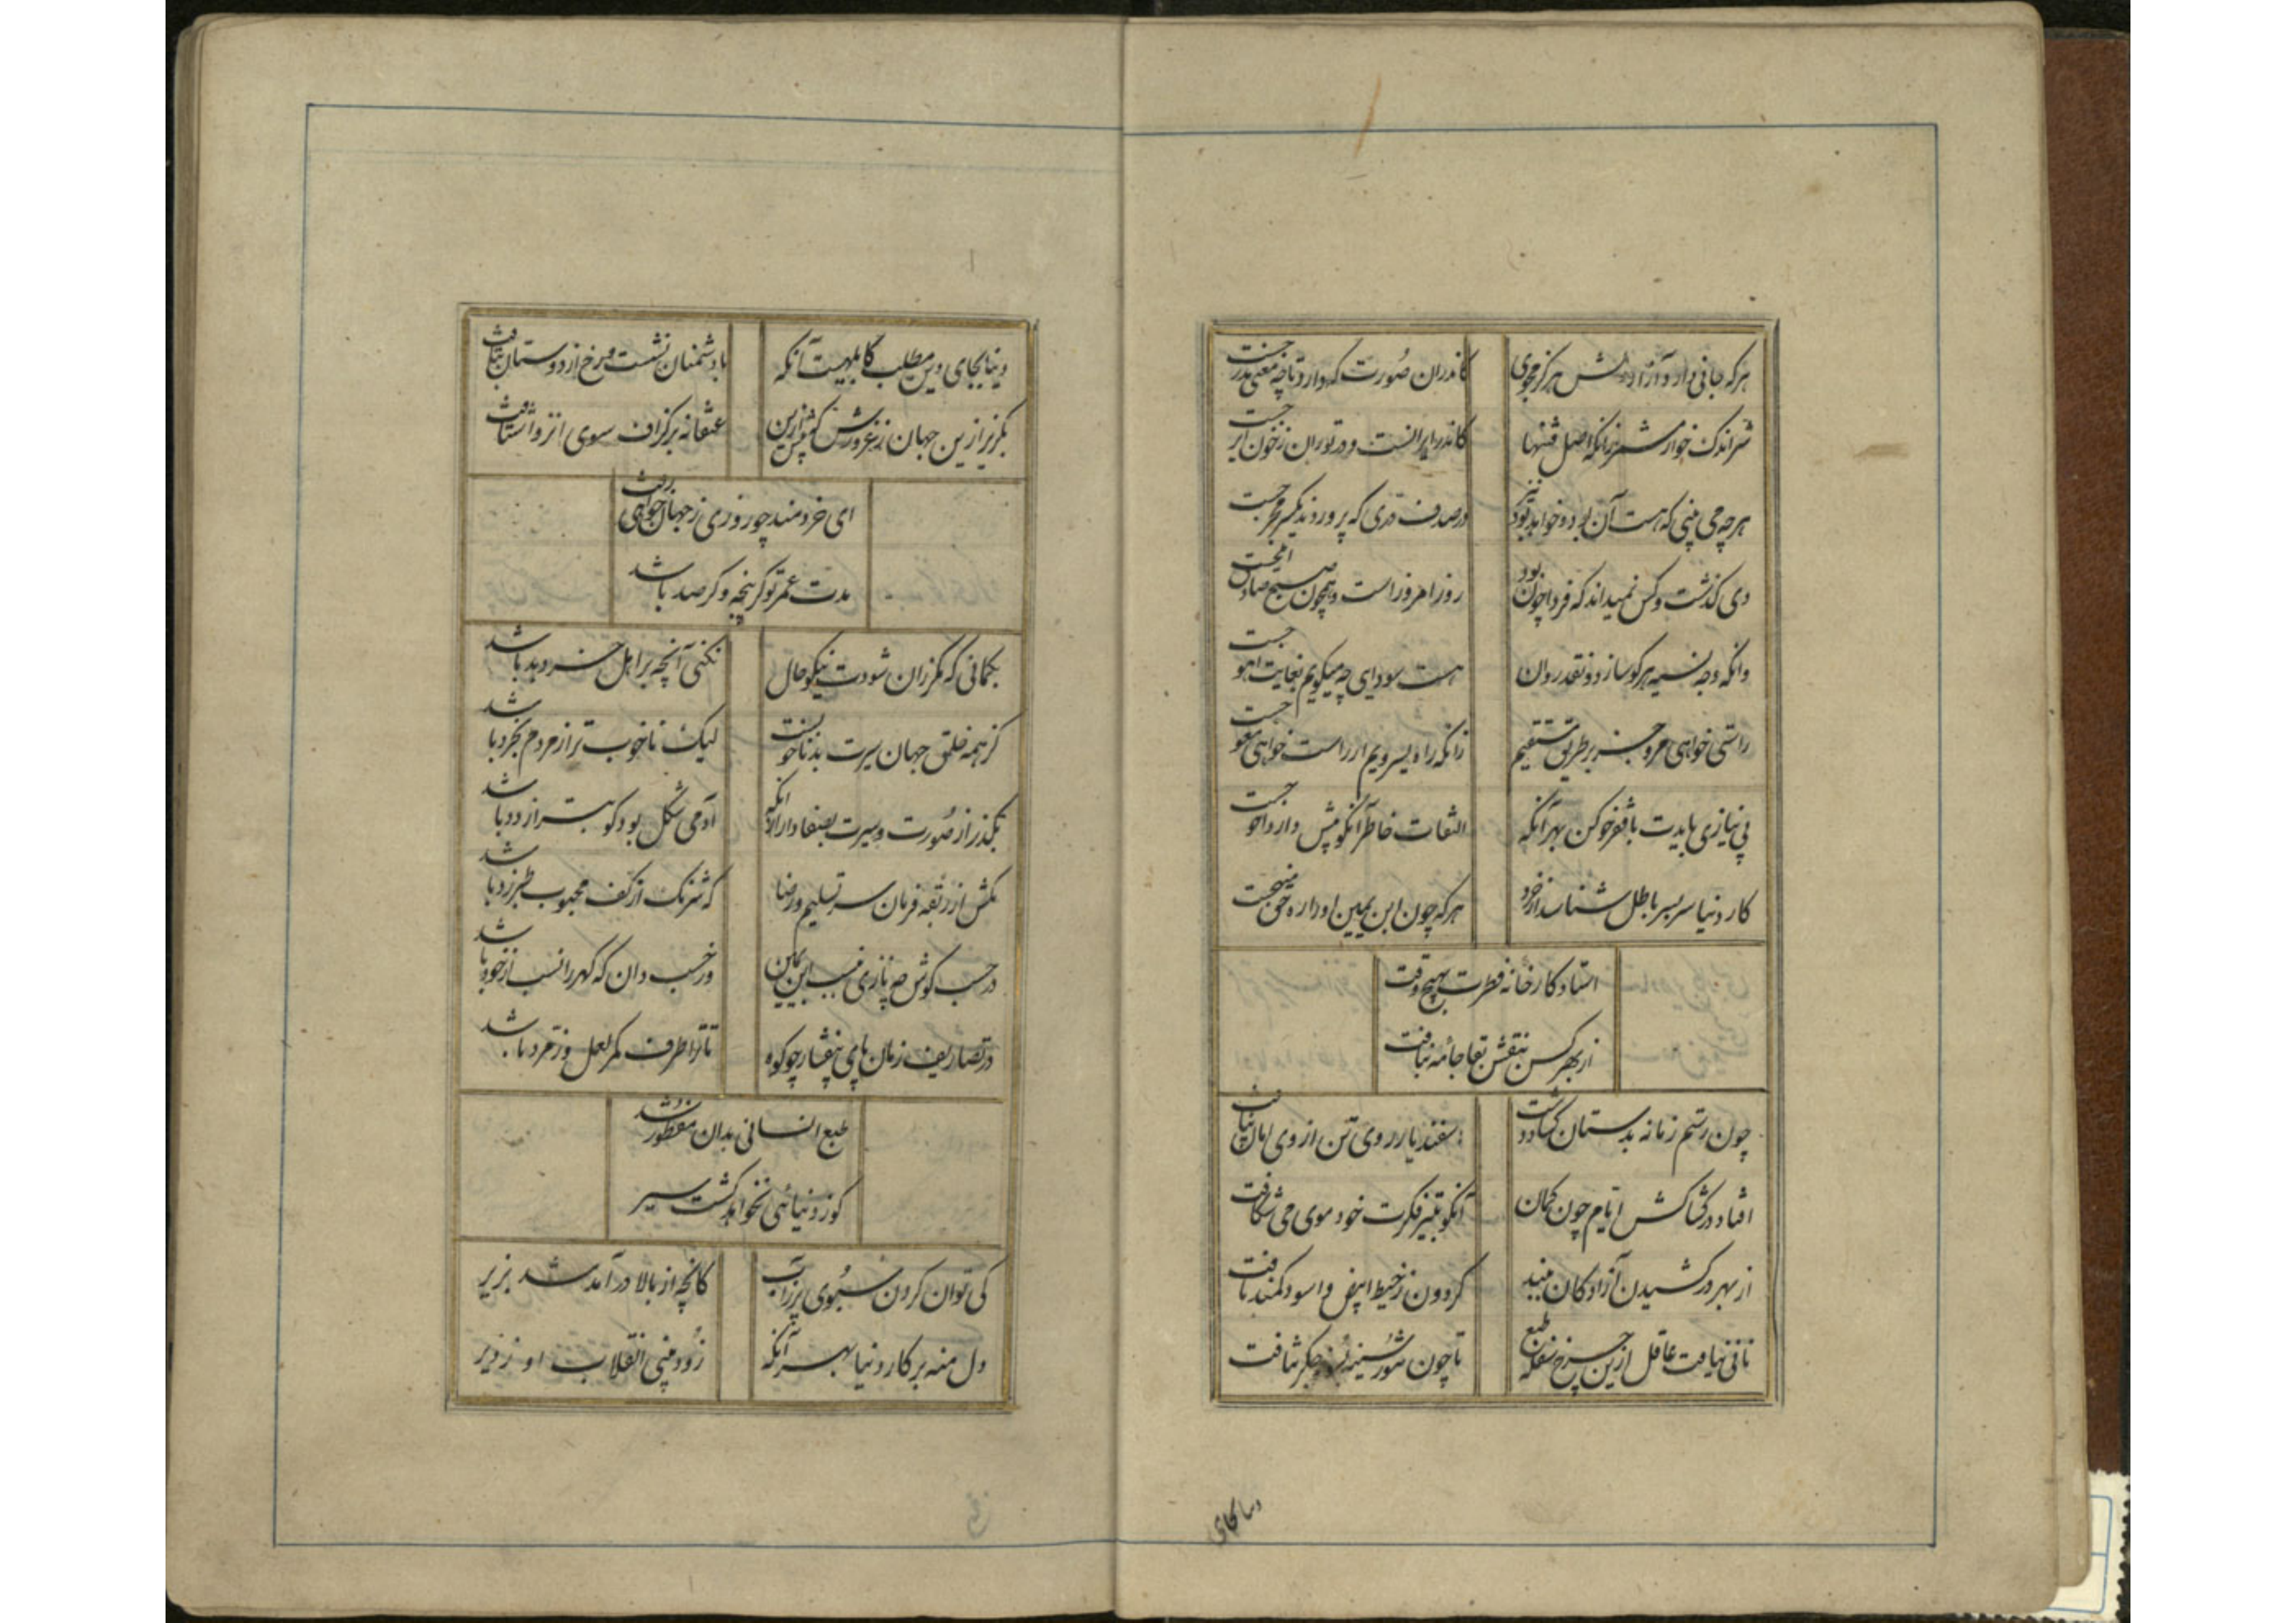 هرکه جانی دارد آزار دلش هرگز مجوی کاندران صورت که دارد تا چه معنی مدرجست
شر اندک خوار مشمر زانکه اصل فتنها کاندر ایرانست و در توران ز خون ایرجست
هرچه می بینی که هست آن بود و خواهد بود نیز در صدف دری که پروردند یکسر
دی گذشت و کس نمیداند که فردا چون بود روز امروز است و همچون صبح صادق
وانکه وجه نسیه هرکو سازد و نقد روان هست سودای چه میگویم بغایت اهوجست
راستی خواهی مرو جز بر طریق مستقیم زانکه راه یسرویم ار راست خواهی معوجست
بی نیازی بایدت با فقر خو کن بهر آنکه التفات خاطر آنکو بیش دارد احوجست
کار دنیا سربسر باطل شناسد از خرد هرکه چون ابن یمین او را ره حق منهجست
استاد کارخانه فطرت بهیچ وقت
از بهر کس بنقش بقا جامه نبافت
چون رستم زمانه بدستان گشاد دست اسفندیار روی تن از وی امان نیافت
افتاد در کشاکش ایام چون کمان آنکو بتیر فکرت خود موی می شکافت
از بهر در کشیدن آزادگان ببند گردون ز خیط ابیض و اسود کمند تافت
نانی نیافت عاقل ازین چرخ سفله طبع تا چون تنور سینه جگر نتافت
دنیا بجای
دنیا بجای دین مطلب کابلهیست آنکه با دشمنان نشست و رخ از دوستان بتافت
بگریز ازین جهان عنقا نه برگزاف سوی انزوا شتافت
ای خردمند چو روزی ز جهان خواهی رفت
مدت عمر تو گر پنجه و گر صد باشد
بگمانی که مگر زان شودت نیکو حال نکنی آنچه بر اهل خرد بد باشد
گر همه خلق جهان سیرت بد ناخوبست لیک ناخوب تر از مردم بخرد باشد
بگذر از صورت و سیرت بصفا دار آنکه آدمی شکل بود کو بتر از دد باشد
مکش از ربقه فرمان سر تسلیم و رضا که شرنگ از کف محبوب طبرزد باشد
در حسب کوش چه نازی بنسب ابن یمین ور حسب دان که گهر را نسب از خود باشد
در تصاریف زمان پای بیفشار چو کوه تا ترا طرف کمر لعل و زمرد باشد
طبع انسانی بدان مفطور شد
کو ز دنیا می نخواهد گشت سیر
کی توان کردن سبوی پر ز آب کانچه از بالا درآمد شد بزیر
دل منه بر کار دنیا بهر آنکه زود بینی انقلاب او نه دیر